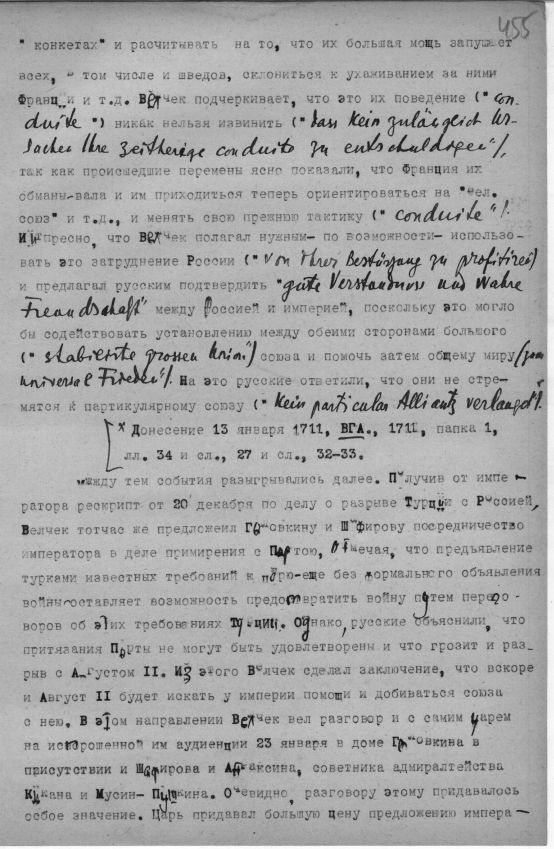 455
" конкетах" и расчитывать на то, что их большая мощь запушает
всех, в том числе и шведов, склониться к ухаживанием за ними
Франции и т.д. Велчек подчеркивает, что это их поведение ("con-
duite ") никак нельзя извинить ("dass kein zulänglich Ur-
sachen Ihre zeitherige conduite zu entschuldigen"/,
так как происшедшие перемены ясно показали, что Франция их
обманывала и им приходиться теперь ориентироваться на "вел.
союз" и т.д., и менять свою прежнюю тактику ("conduite"/.
Интересно, что Велчек полагал нужным- по возможности- использо-
вать это затруднение России ("von ihrer Bestürzung zu profitiren)
и предлагал русским подтвердить "gute Verständnus und wahre
Freundschaft" между Россией и империей, поскольку это могло
бы содействовать установлению между обеими сторонами большого
(" grossen Union") союза и помочь затем общему миру (zum
universal Frieden"/. На это русские ответили, что они не стре-
мятся к партикулярному союзу ("kein particular Alliantz verlanget".
x Донесение 13 января 1711, ВГА., 1711, папка 1,
лл. 34 и сл., 27 и сл., 32-33.
Между тем события разыгрывались далее. Получив от импе -
ратора рескрипт от 20 декабря по делу о разрыве Турции с Россией,
Велчек тотчас же предложеил Головкину и Шафирову посредничество
императора в деле примирения с Портою, отмечая, что предъявление
турками известных требоаний к царю-еще без формального объявления
войны-оставляет возможность предотвратить войну путем перего -
воров об этих требованиях Турции. Однако, русские объяснили, что
притязания Порты не могут быть удовлетворены и что грозит и раз_
рыв с Августом II. Из этого Велчек сделал заключение, что вскоре
и Август II будет искать у империи помощи и добиваться союза
с нею. В этом направлении Велчек вел разговор и с самим царем
на испрошенной им аудиенции 23 января в доме Головкина в
присутствии и Шафирова и Апраксина, советника адмиралтейства
Кикина и Мусин- Пушкина. Очевидно, разговору этому придавалось
особое значение. Царь придавал большую цену предложению импера-